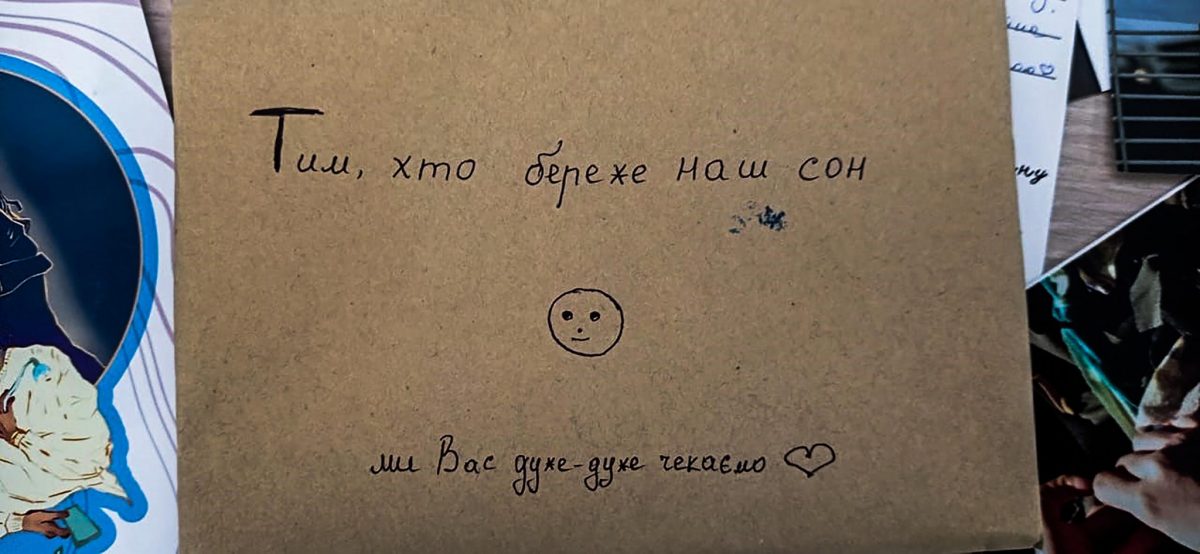 Тим, хто береже наш сон
ми Вас дуже-дуже чекаємо ♡